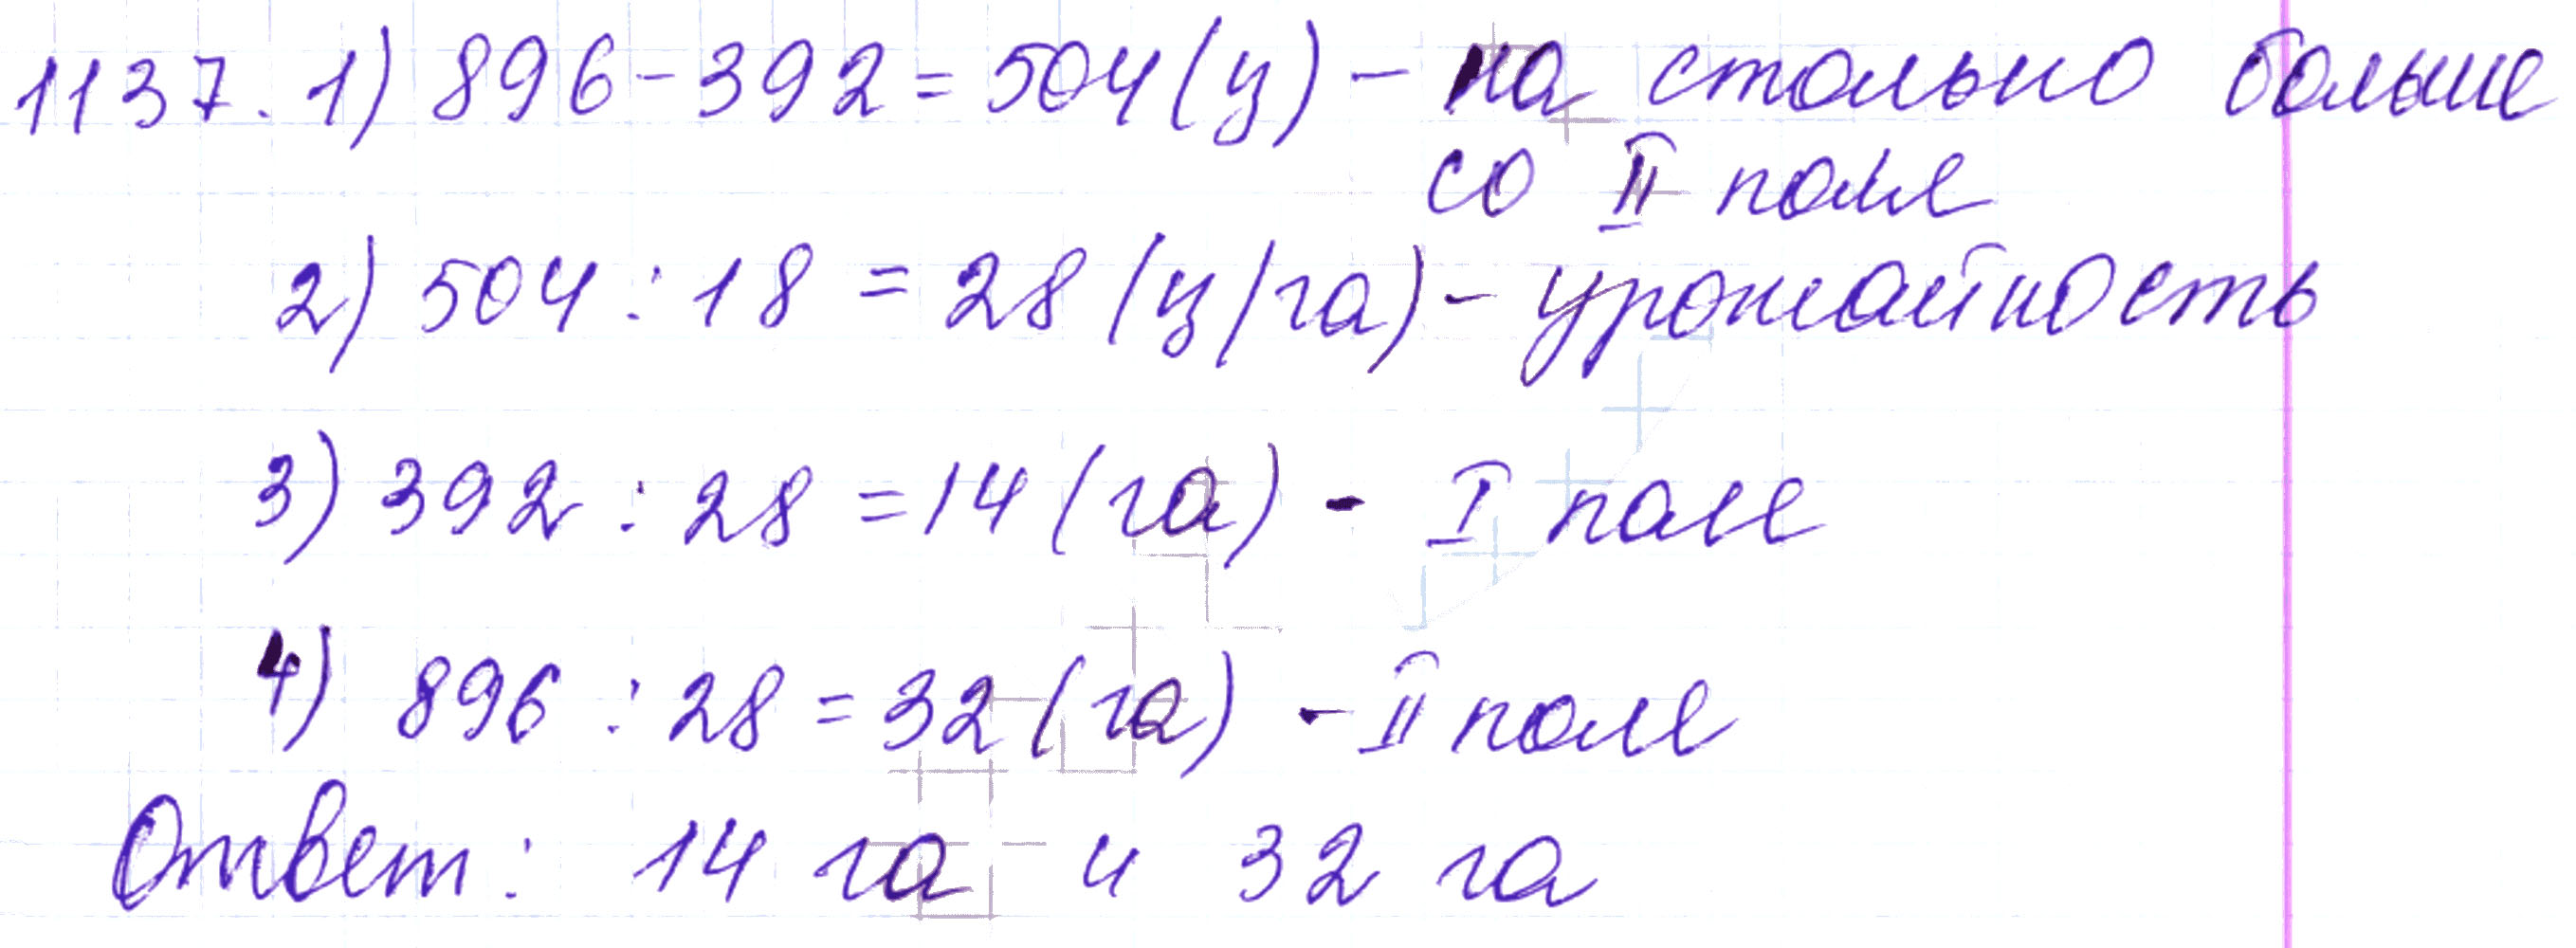 1137. 1) 896 - 392 = 504 (ц) - на столько больше
со II поле
2) 504 : 18 = 28 (ц/га) - урожайность
3) 392 : 28 = 14 (га) - I поле
4) 896 : 28 = 32 (га) - II поле
Ответ: 14 га и 32 га